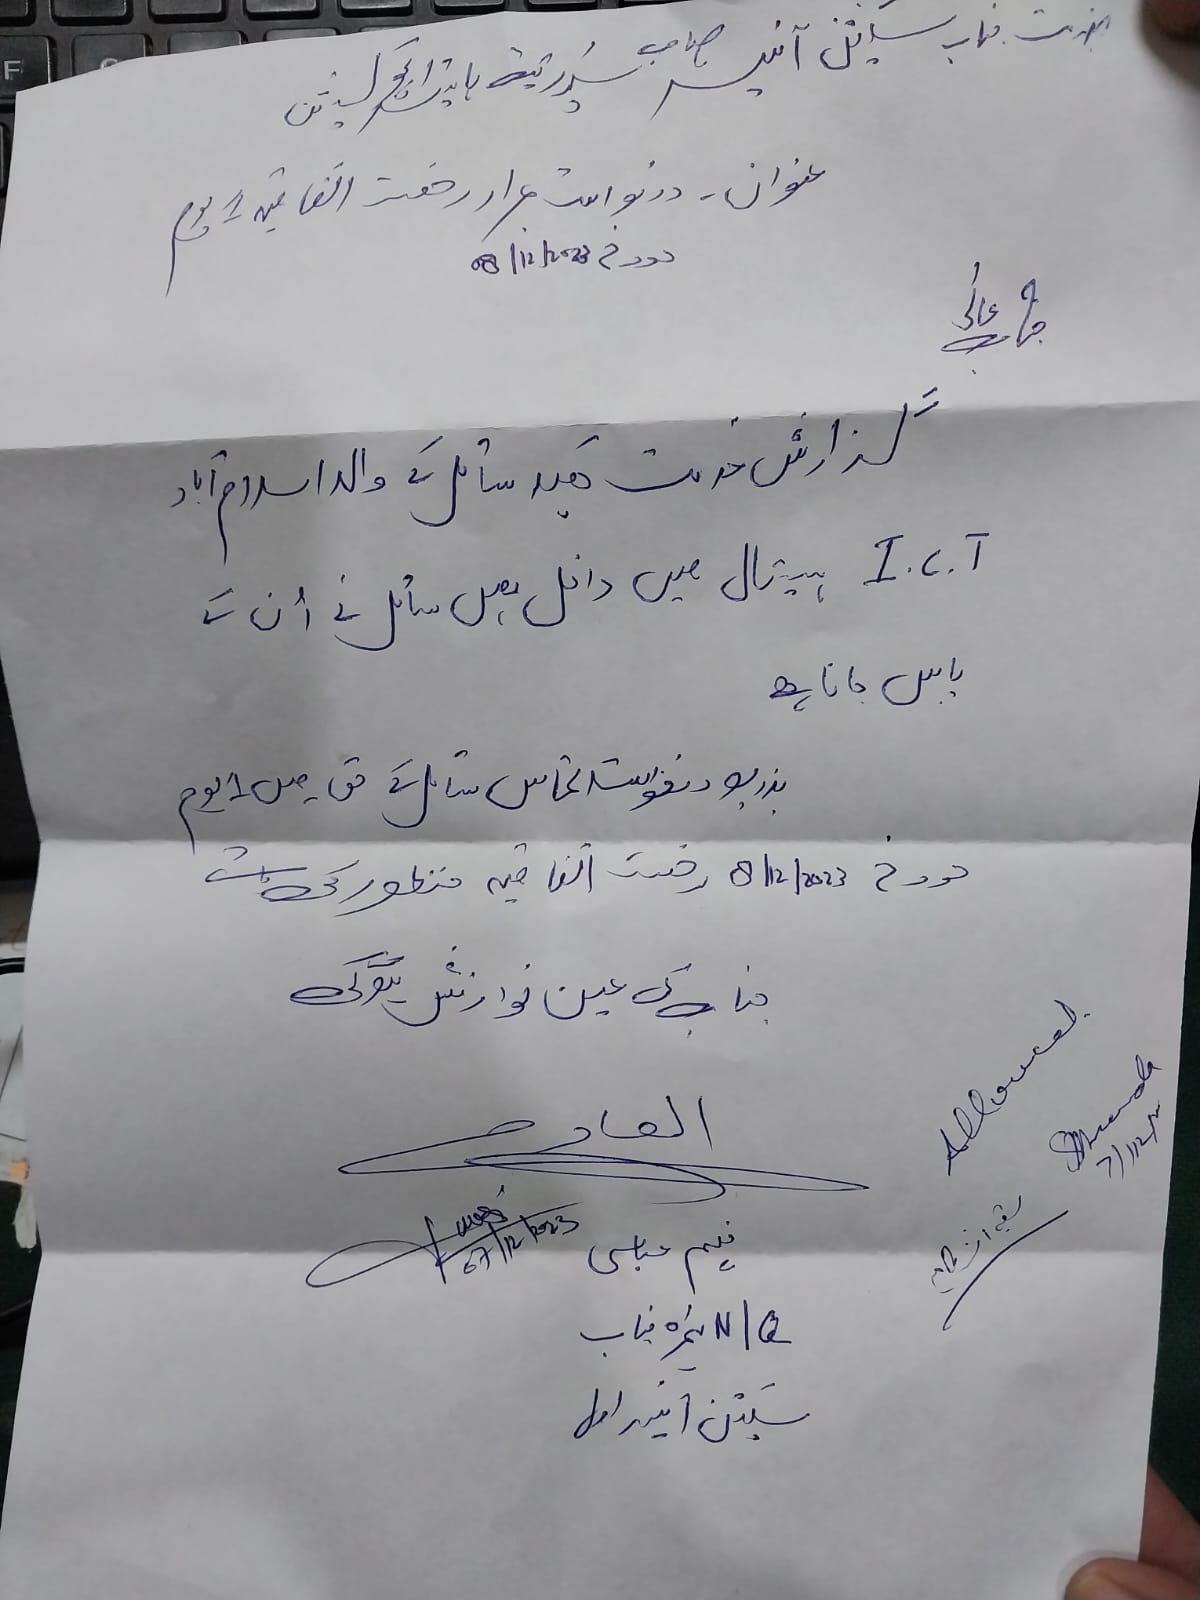 بخدمت جناب سیکشن آفیسر صاحب
عنوان۔ درخواست مراد رخصت اتفاقیہ 1 یوم
مورخہ 08/12/2023
جناب عالی
گزارش خدمت ہیکہ سائل کے والد اسلام آباد
I.C.T ہسپتال میں داخل ہیں سائل نے اُن کے
پاس جانا ہے
بذریعہ درخواست التماس سائل کے حق میں 1 یوم
مورخہ 8/12/2023 رخصت اتفاقیہ منظور کی جائے
جناب کی عین نوازش ہوگی
العارض
07/12/2023
Allowed.
7/12/
نسیم عباسی
N/Q ہمراہ جناب
سیکشن آفیسر اول